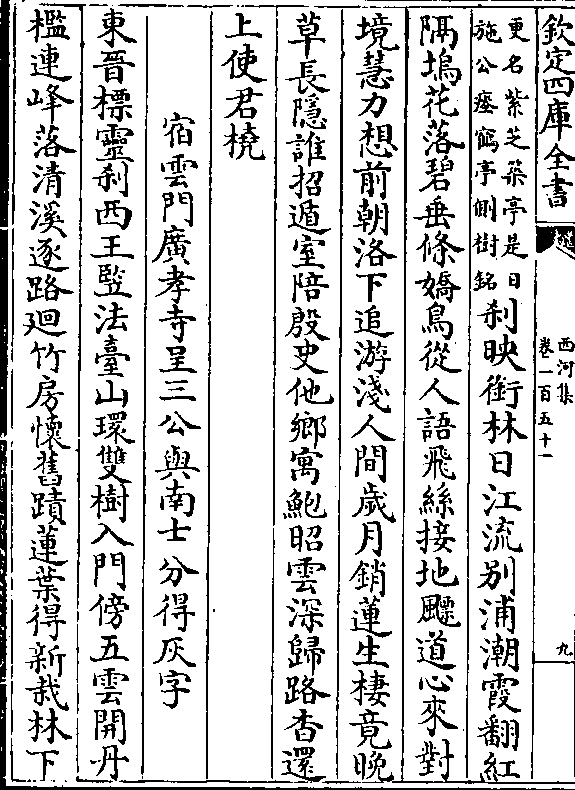 欽定四庫全書
西河集
卷一百五十一
九
更名紫芝築亭是日
施公瘞鶴亭側樹銘
刹映銜林日江流别浦潮霞翻紅
隔塢花落碧垂條嬌鳥從人語飛絲接地飄道心來對
境慧力想前朝洛下追游淺人間歲月銷蓮生棲竟晚
草長隱誰招遁室陪殷史他鄉寓鮑昭雲深歸路杳還
上使君橈
宿雲門廣孝寺呈三公與南士分得灰字
東晉標靈刹西王暨法臺山環雙樹入門傍五雲開丹
檻連峰落清溪逐路迴竹房懷舊蹟蓮葉得新栽林下